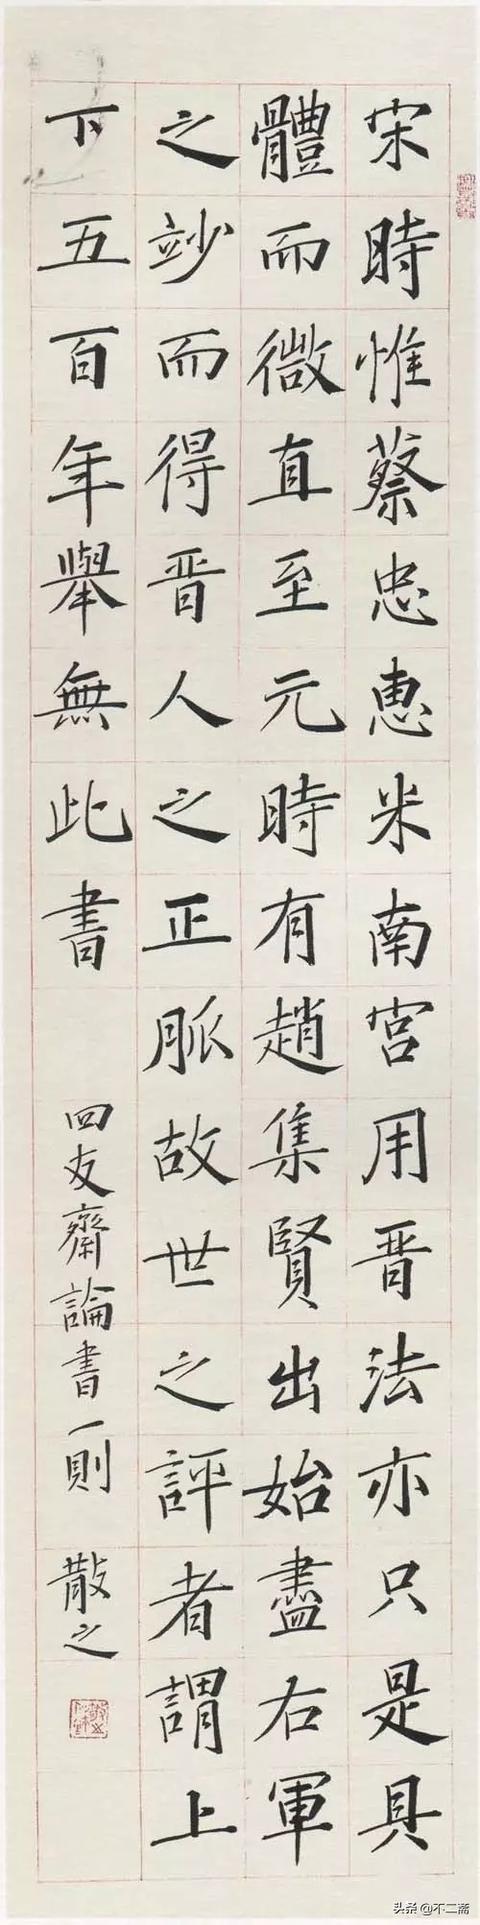 宋時惟蔡忠惠米南宮用晋法亦只是具
體而微直至元時有趙集賢出始盡右軍
之竗而得晋人之正脈故世之評者謂上
下五百年舉無此書
四友齋論書一則 散之
头条@不二斋